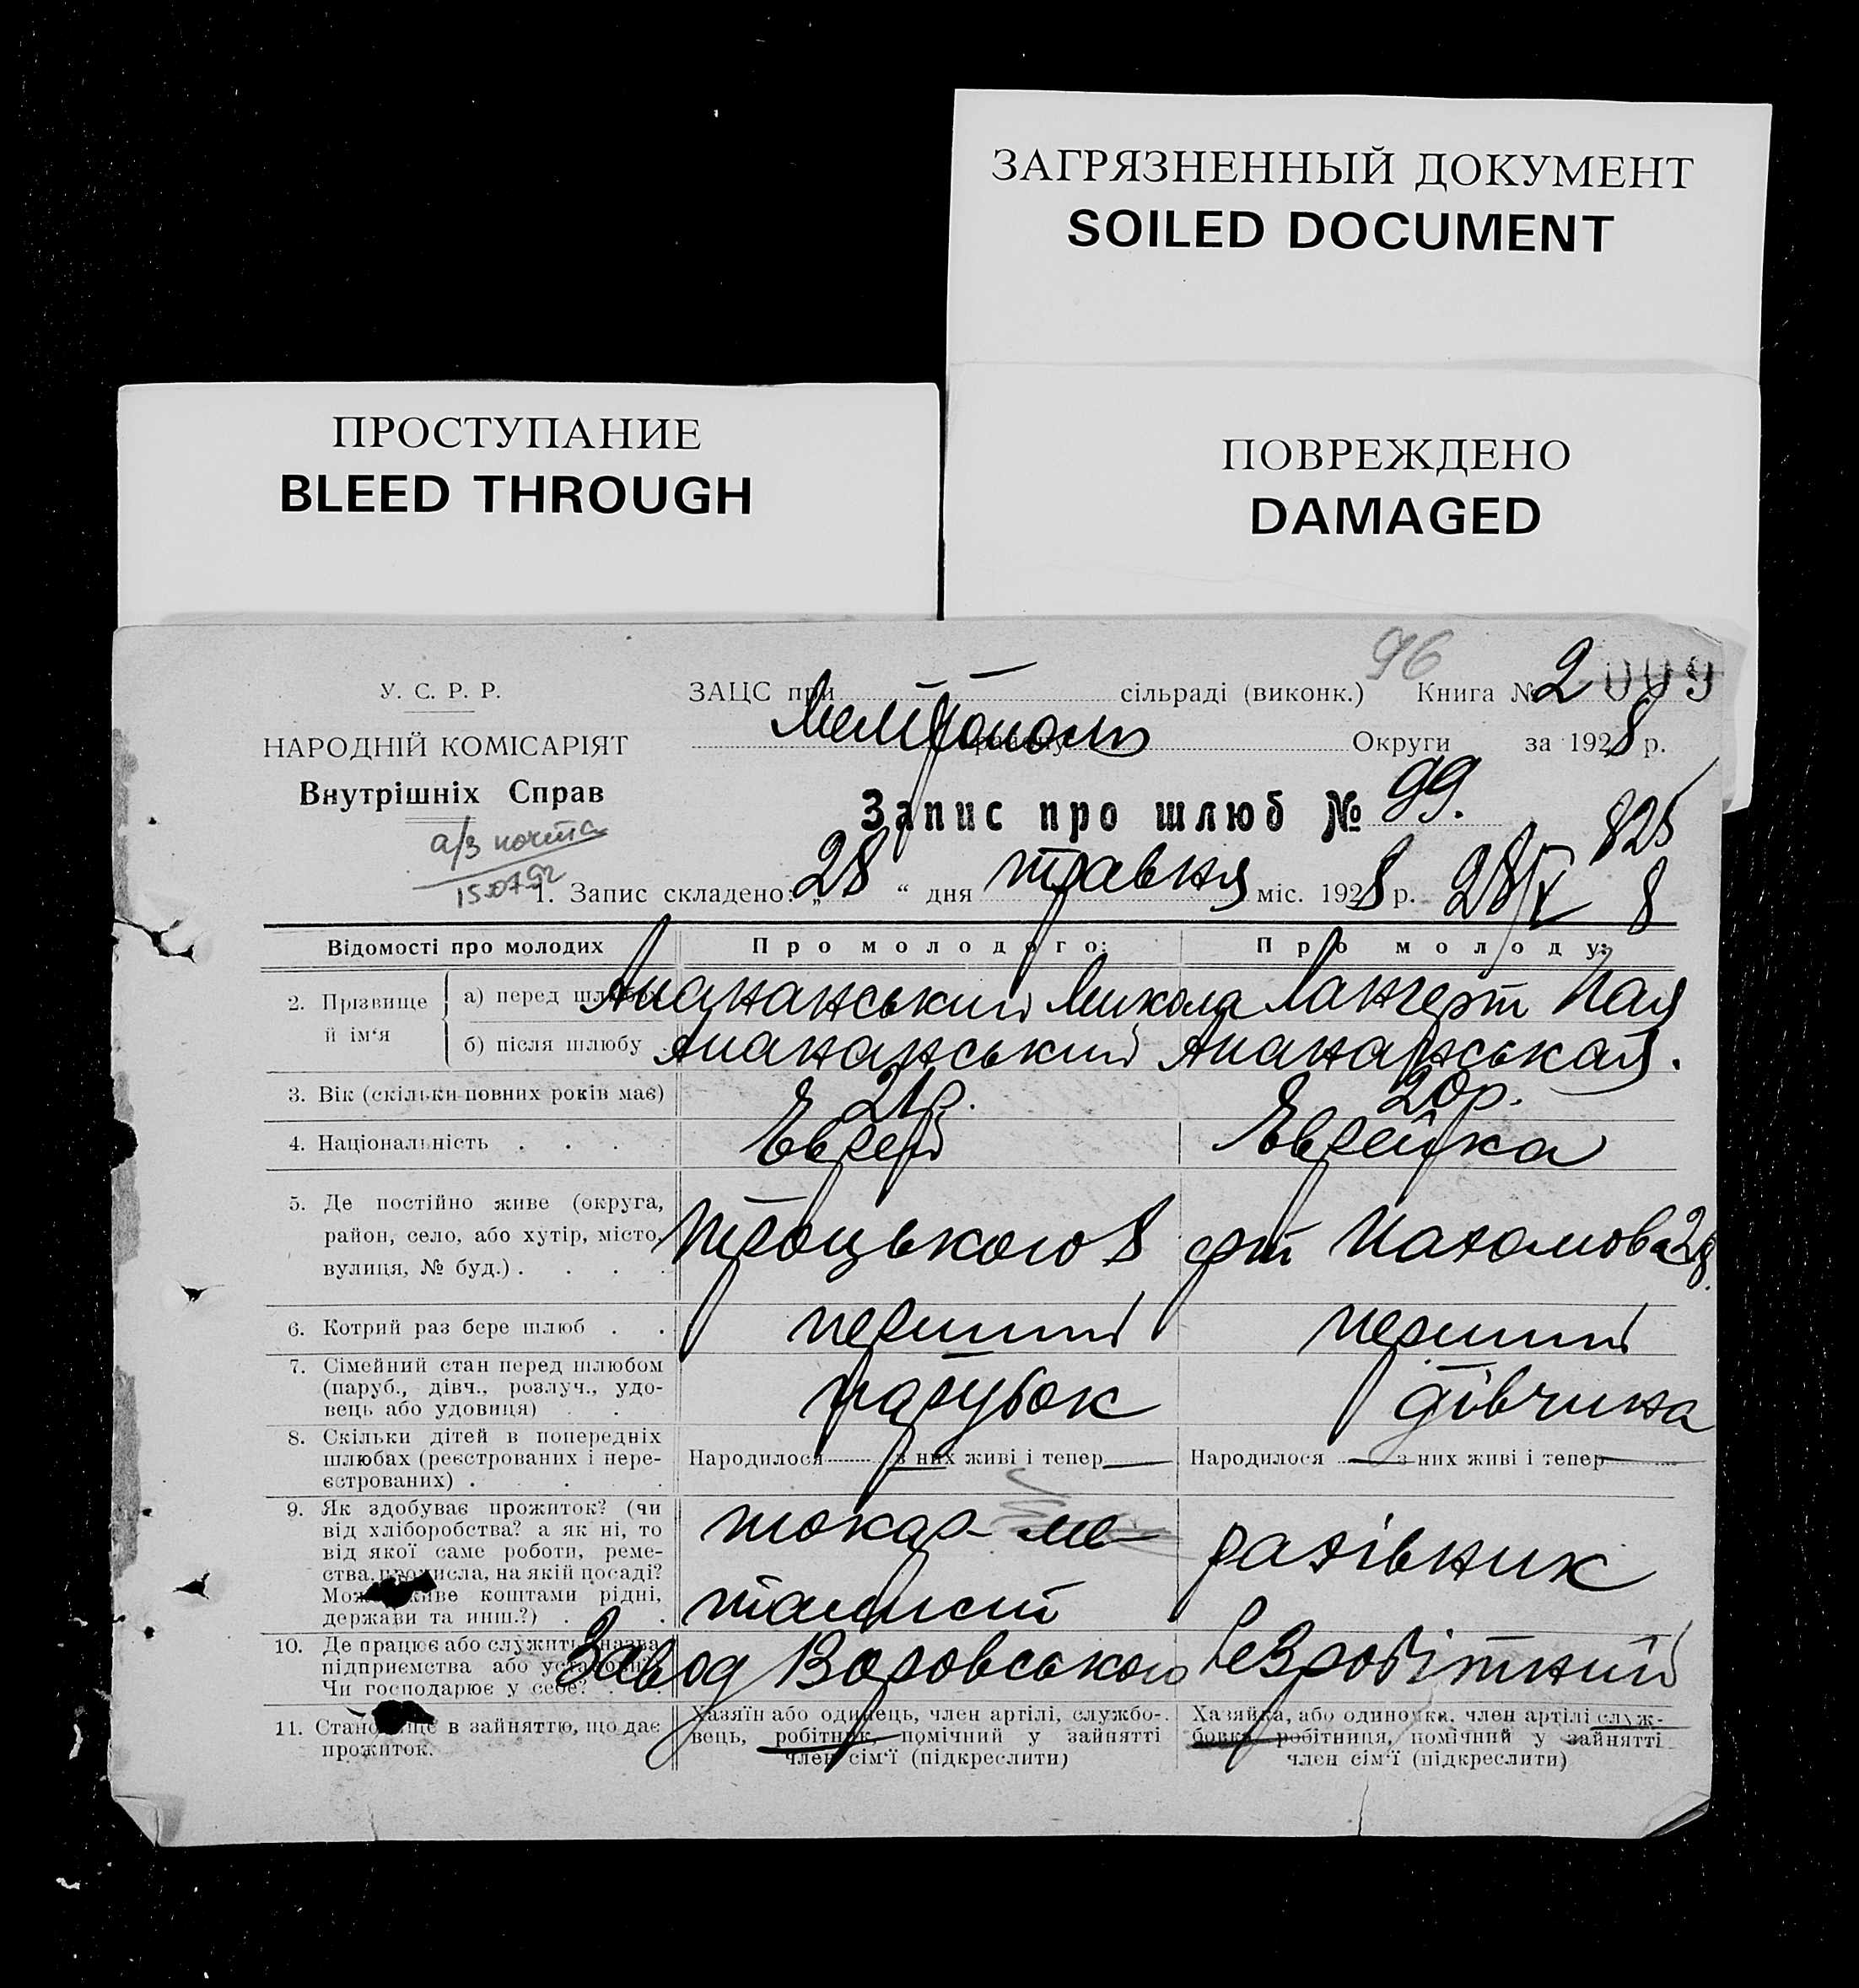 ЗАГРЯЗНЕННЫЙ ДОКУМЕНТ
SOILED DOCUMENT
ПРОСТУПАНИЕ
BLEED THROUGH
ПОВРЕЖДЕНО
DAMAGED
96
У. С. Р. Р.
ЗАЦС при сільраді (виконк.) Книга № 2 009
НАРОДНІЙ КОМІСАРІЯТ
Мелітополь Округи за 1928 р.
Внутрішніх Справ
Запис про шлюб № 99.
а/з почта
15.07.92
825
1. Запис складено: „28“ дня травня міс. 1928 р. 28/V 8
Відомості про молодих Про молодого: Про молоду:
2. Прізвище й ім‘я
а) перед шлюбом Ананьанський Микола Лангерт Пая
б) після шлюбу Ананьанський Ананьанськая.
3. Вік (скільки повних років має) 21р. 20р.
4. Національність . . . . Еврей Еврейка
5. Де постійно живе (округа,
район, село, або хутір, місто,
вулиця, № буд.) . . . .
Троцького 8 Пахамова 28.
6. Котрий раз бере шлюб . . перший перший
7. Сімейний стан перед шлюбом
(паруб., дівч., розлуч., удо-
вець або удовиця) . .
парубок дівчина
8. Скільки дітей в попередніх
шлюбах (реєстрованих і нере-
єстрованих) . . . .
Народилося з них живі і тепер Народилося з них живі і тепер
9. Як здобуває прожиток? (чи
від хліборобства? а як ні, то
від якої саме роботи, реме-
ства, промисла, на якій посаді?
Може живе коштами рідні,
держави та инш.?) . .
токар-ме-
таліст
рахівник
10. Де працює або служить назва
підприємства або установи?
Чи господарює у себе? . .
Завод Воровського Безробітний
11. Становище в зайняттю, що дає
прожиток.
Хазяїн або одинець, член артілі, службо-
вець, робітник, помічний у зайнятті
член сім‘ї (підкреслити)
Хазяйка, або одиночка, член артілі служ-
бовка робітниця, помічний у зайнятті
член сім‘ї (підкреслити)